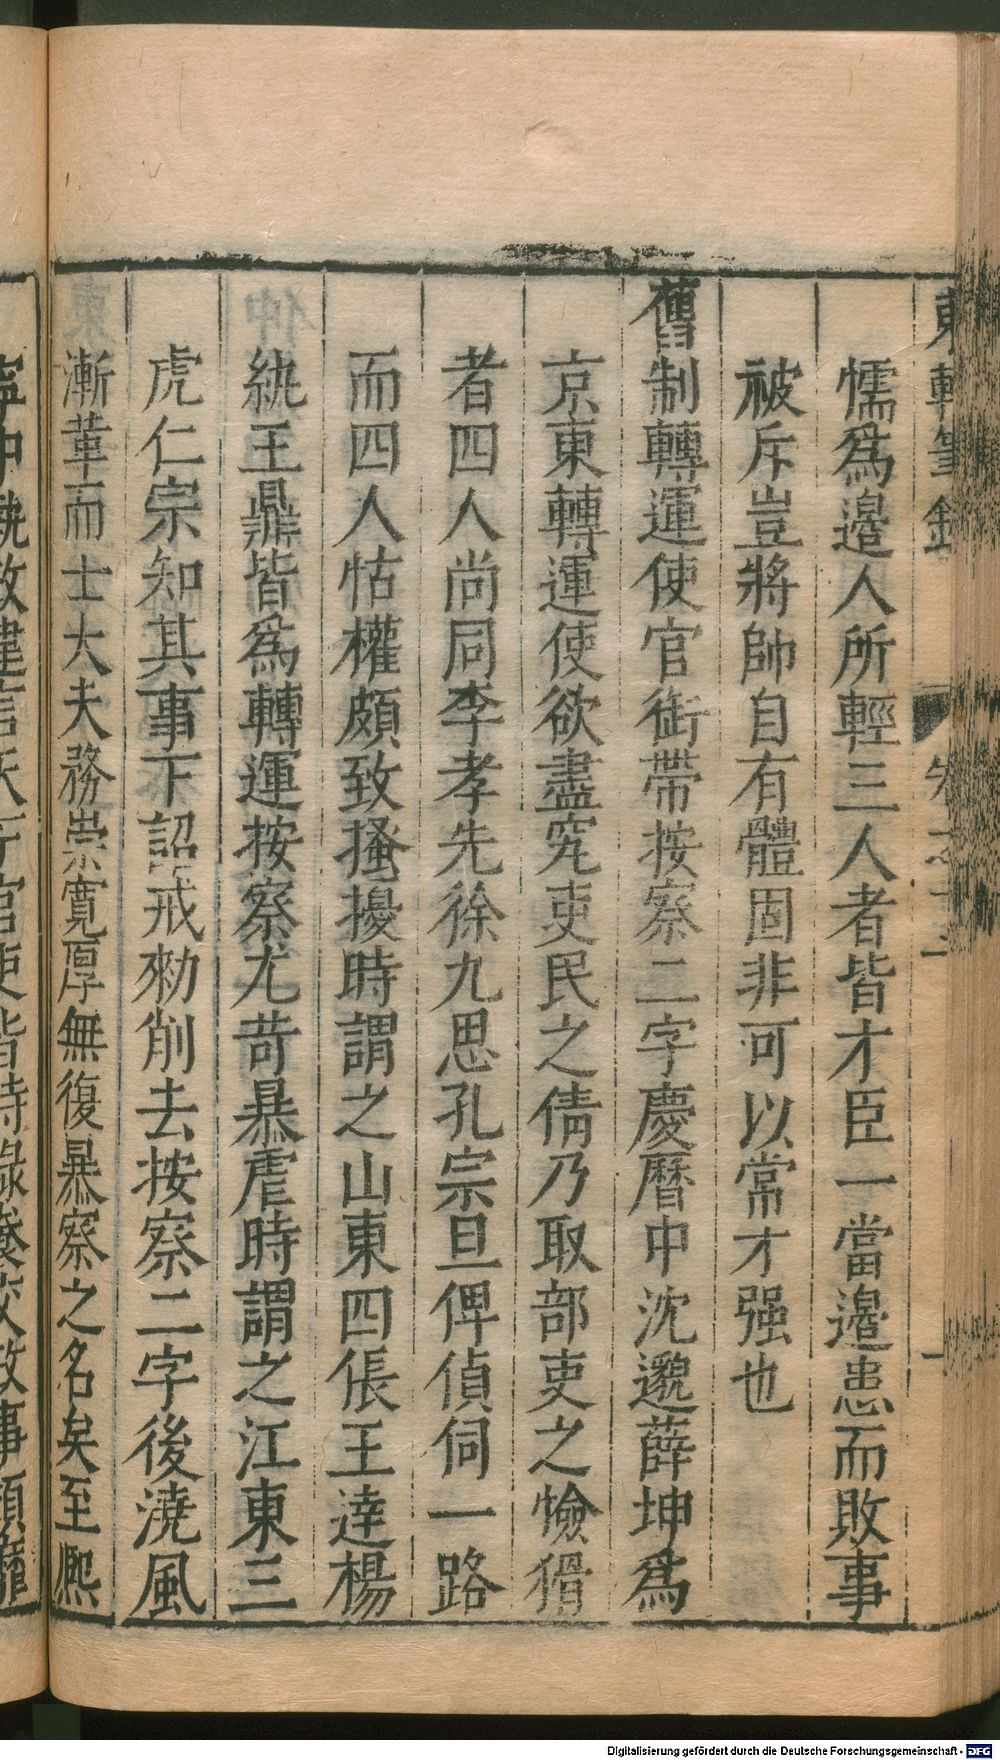 東軒筆錄
懦爲邉人所輕三人者皆才臣一當邉患而敗事
被斥豈將帥自有體固非可以常才强也
舊制轉運使官銜帶按察二字慶曆中沈邈薛坤爲
京東轉運使欲盡究吏民之情乃取部吏之憸猾
者四人尚同李孝先徐九思孔宗旦俾偵伺一路
而四人怙權頗致搔擾時謂之山東四倀王逵楊
紈王鼎皆爲轉運按察尤苛暴虐時謂之江東三
虎仁宗知其事下詔戒勑削去按察二字後澆風
漸革而士大夫務崇寬厚無復暴察之名矣至熈
Digitalisierung gefördert durch die Deutsche Forschungsgemeinschaft - DFG